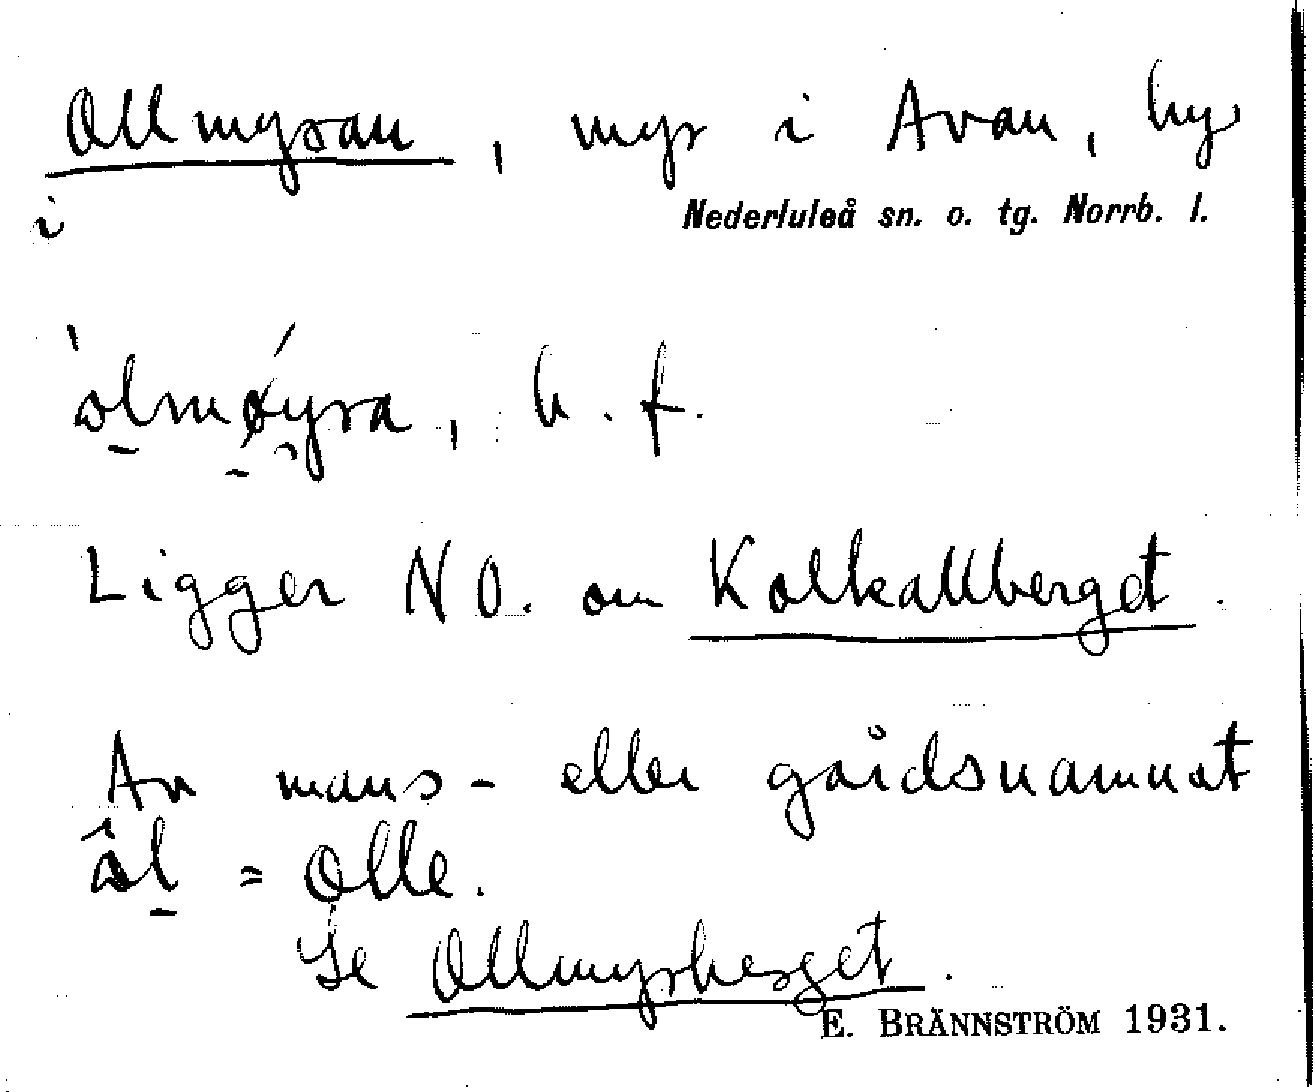 Ollmyran, myr i Avan, by
i Nederluleå sn. o. tg. Norrb. l.
b. f.
Ligger NO. om Kalkallberget.
Av mans- eller gårdsnamnet
= Olle.
Se Ollmyrberget.
E. BRÄNNSTRÖM 1931.